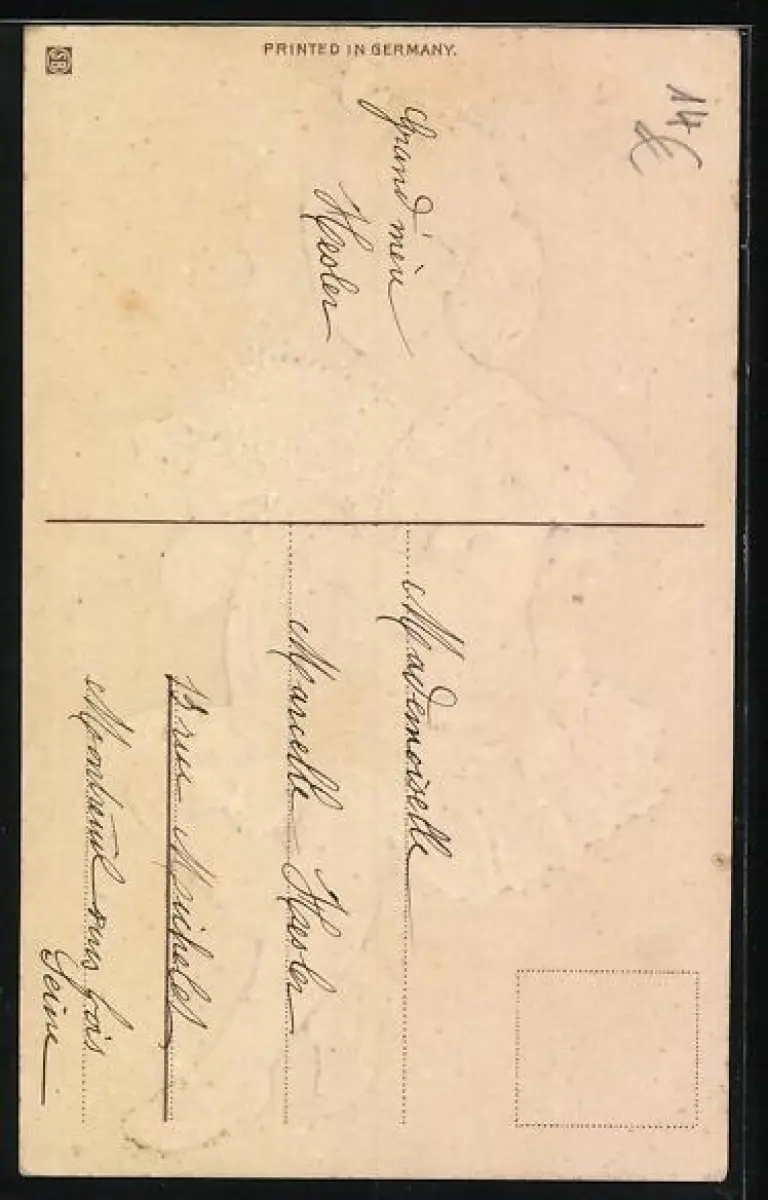 PRINTED IN GERMANY.
SB
14
Grand'mère
Hesler
Mademoiselle
Marcelle Hesler
13 rue Michelet
Montreuil sous bois
Seine